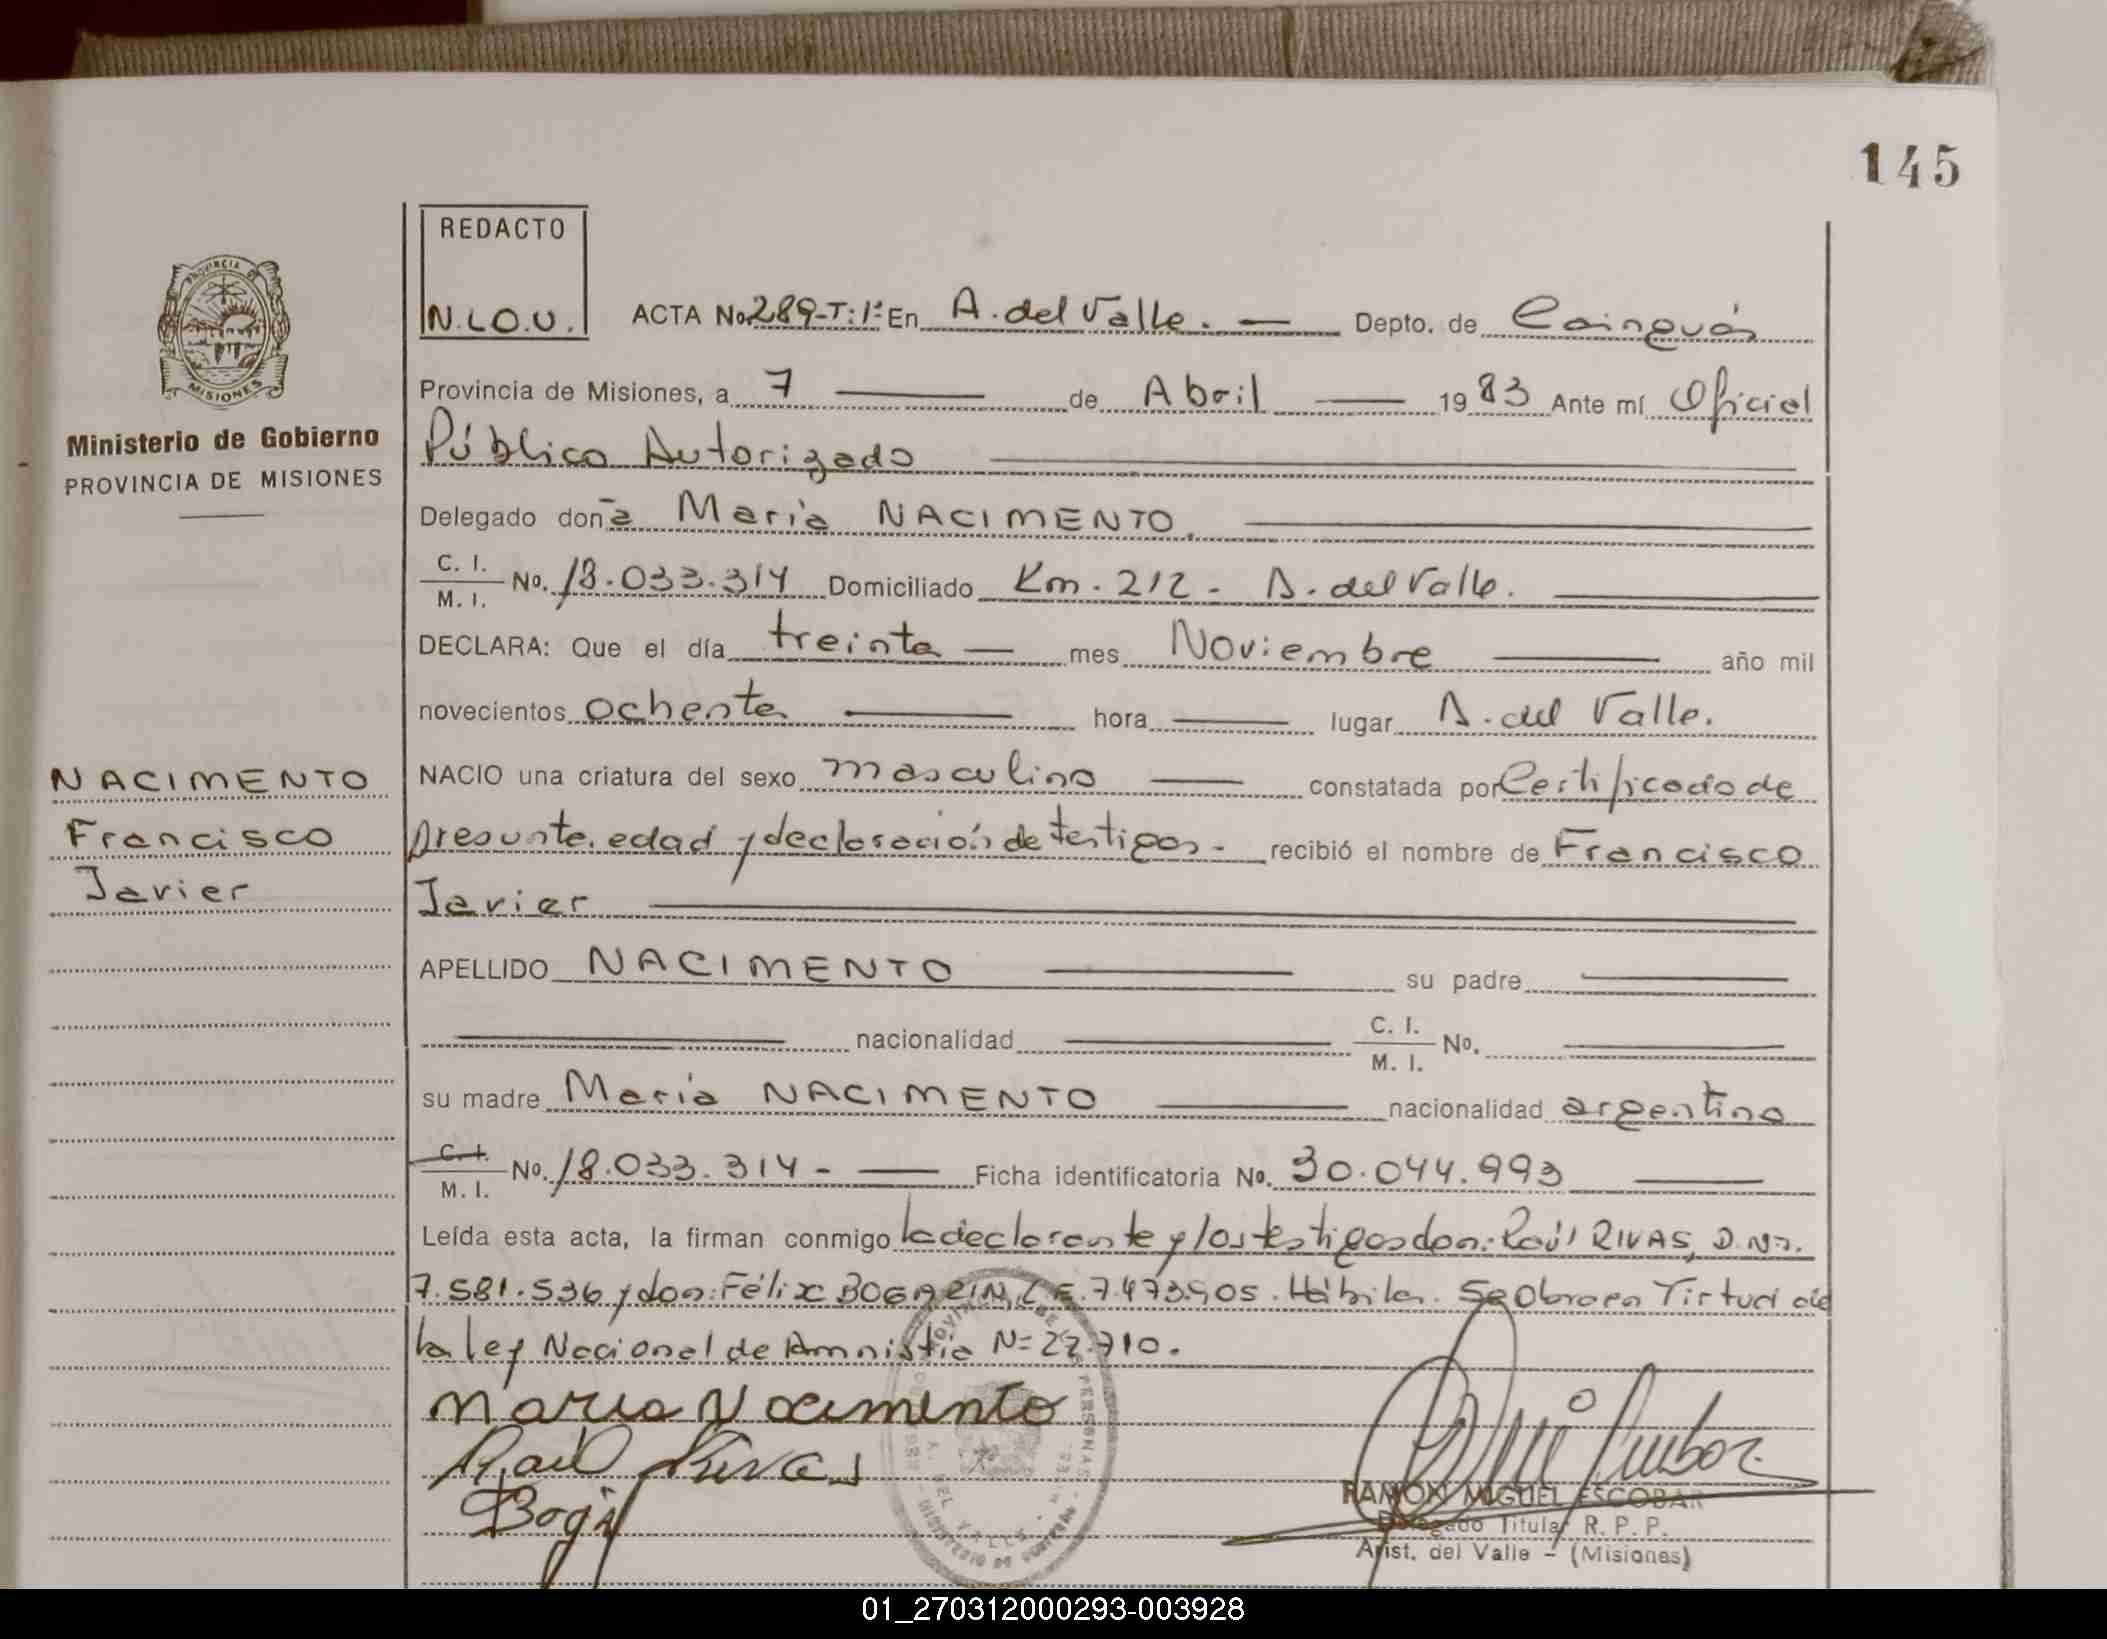 145
REDACTO
N.L.O.U.
ACTA No. 289-T:1º En A. del Valle. — Depto. de Cainguás
Provincia de Misiones, a 7 — de Abril — 1983 Ante mí Oficial
Público Autorizado
Delegado doña María NACIMENTO.
C. I. / M. I. No. 18.033.314 Domiciliado Km. 212 - A. del Valle.
DECLARA: Que el día treinta — mes Noviembre — año mil
novecientos ochenta — hora — lugar A. del Valle.
NACIO una criatura del sexo masculino — constatada por Certificado de
presunta edad y declaración de testigos. recibió el nombre de Francisco
Javier
APELLIDO NACIMENTO — su padre —
— nacionalidad — C. I. / M. I. No. —
su madre María NACIMENTO — nacionalidad argentina
C. I. / M. I. No. 18.033.314 - — Ficha identificatoria No. 30.044.993 —
Leída esta acta, la firman conmigo la declarante y los testigos don: Raúl RIVAS, D.N.I.
7.581.536 y don: Félix BOGARIN, L.E. 7.473.905. Hábiles. Se Obra en Virtud de
la ley Nacional de Amnistia N= 22.710.
Maria Nacimento
Raul Rivas
RAMON MIGUEL ESCOBAR
Delegado Titular R. P. P.
Arist. del Valle - (Misiones)
PROVINCIA DE
MISIONES
Ministerio de Gobierno
PROVINCIA DE MISIONES
NACIMENTO
Francisco
Javier
01_270312000293-003928